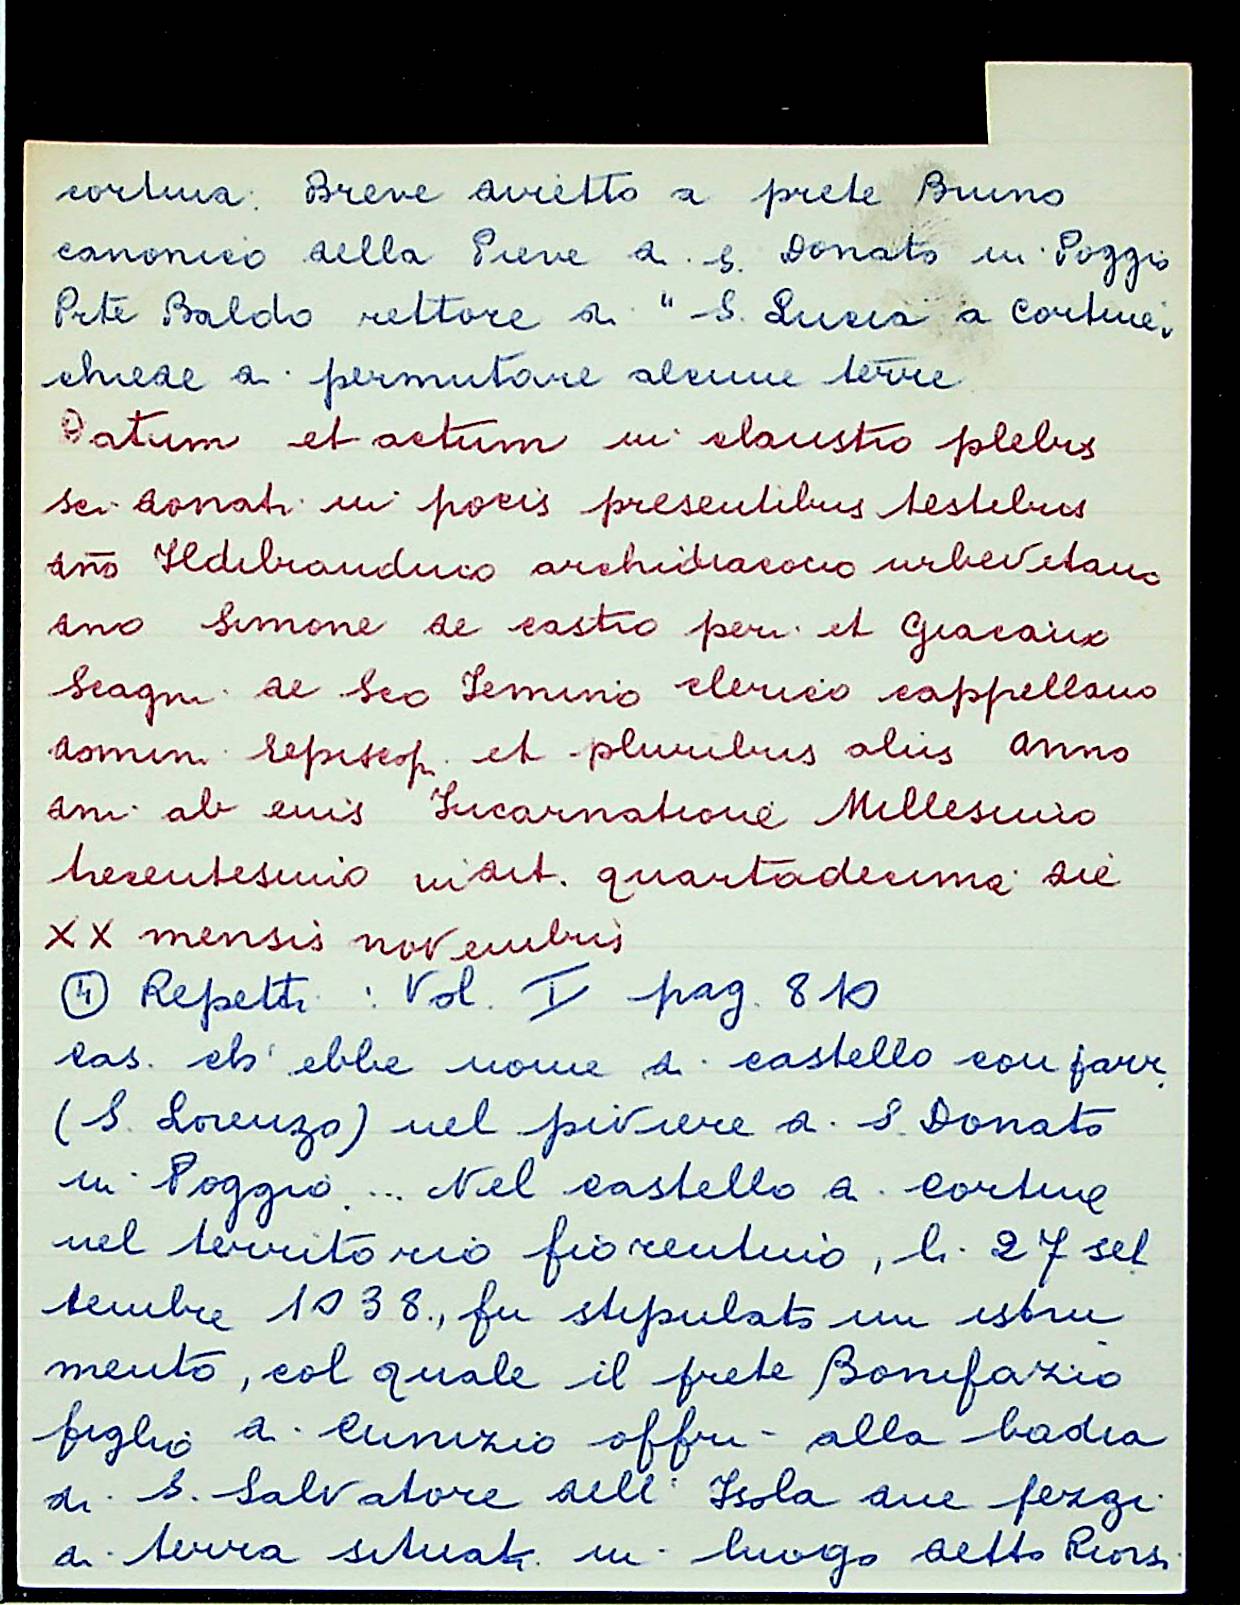 cortina. Breve diretto a prete Bruno
canonico della Pieve di S. Donato in Poggio
Prte Baldo rettore di "S. Lucia a Cortine"
chiede di permutare alcune terre
Datum et actum in claustro plebis
sci donati in pocis presentibus testibus
dño Ildibranduco archidiacocio urbevetano
dno Simone de castro peri et
Scagni de Sco Geminio clerico cappellano
domini Episcopi et pluribus aliis anno
dni ab euis Incarnatione Millesimo
trecentesimo indit. quartadecima die
XX mensis novembris
④ Repetti: Vol. I pag. 810
cas. ch'ebbe nome di castello con parr.
(S. Lorenzo) nel piviere di S. Donato
in Poggio ... Nel castello di Cortine
nel territorio fiorentino, li 27 set
tembre 1038., fu stipulato un istru
mento, col quale il prete Bonifazio
figlio di Cunizio offrì alla badia
di S. Salvatore dell'Isola due pezzi
di terra situati in luogo detto Riorsi